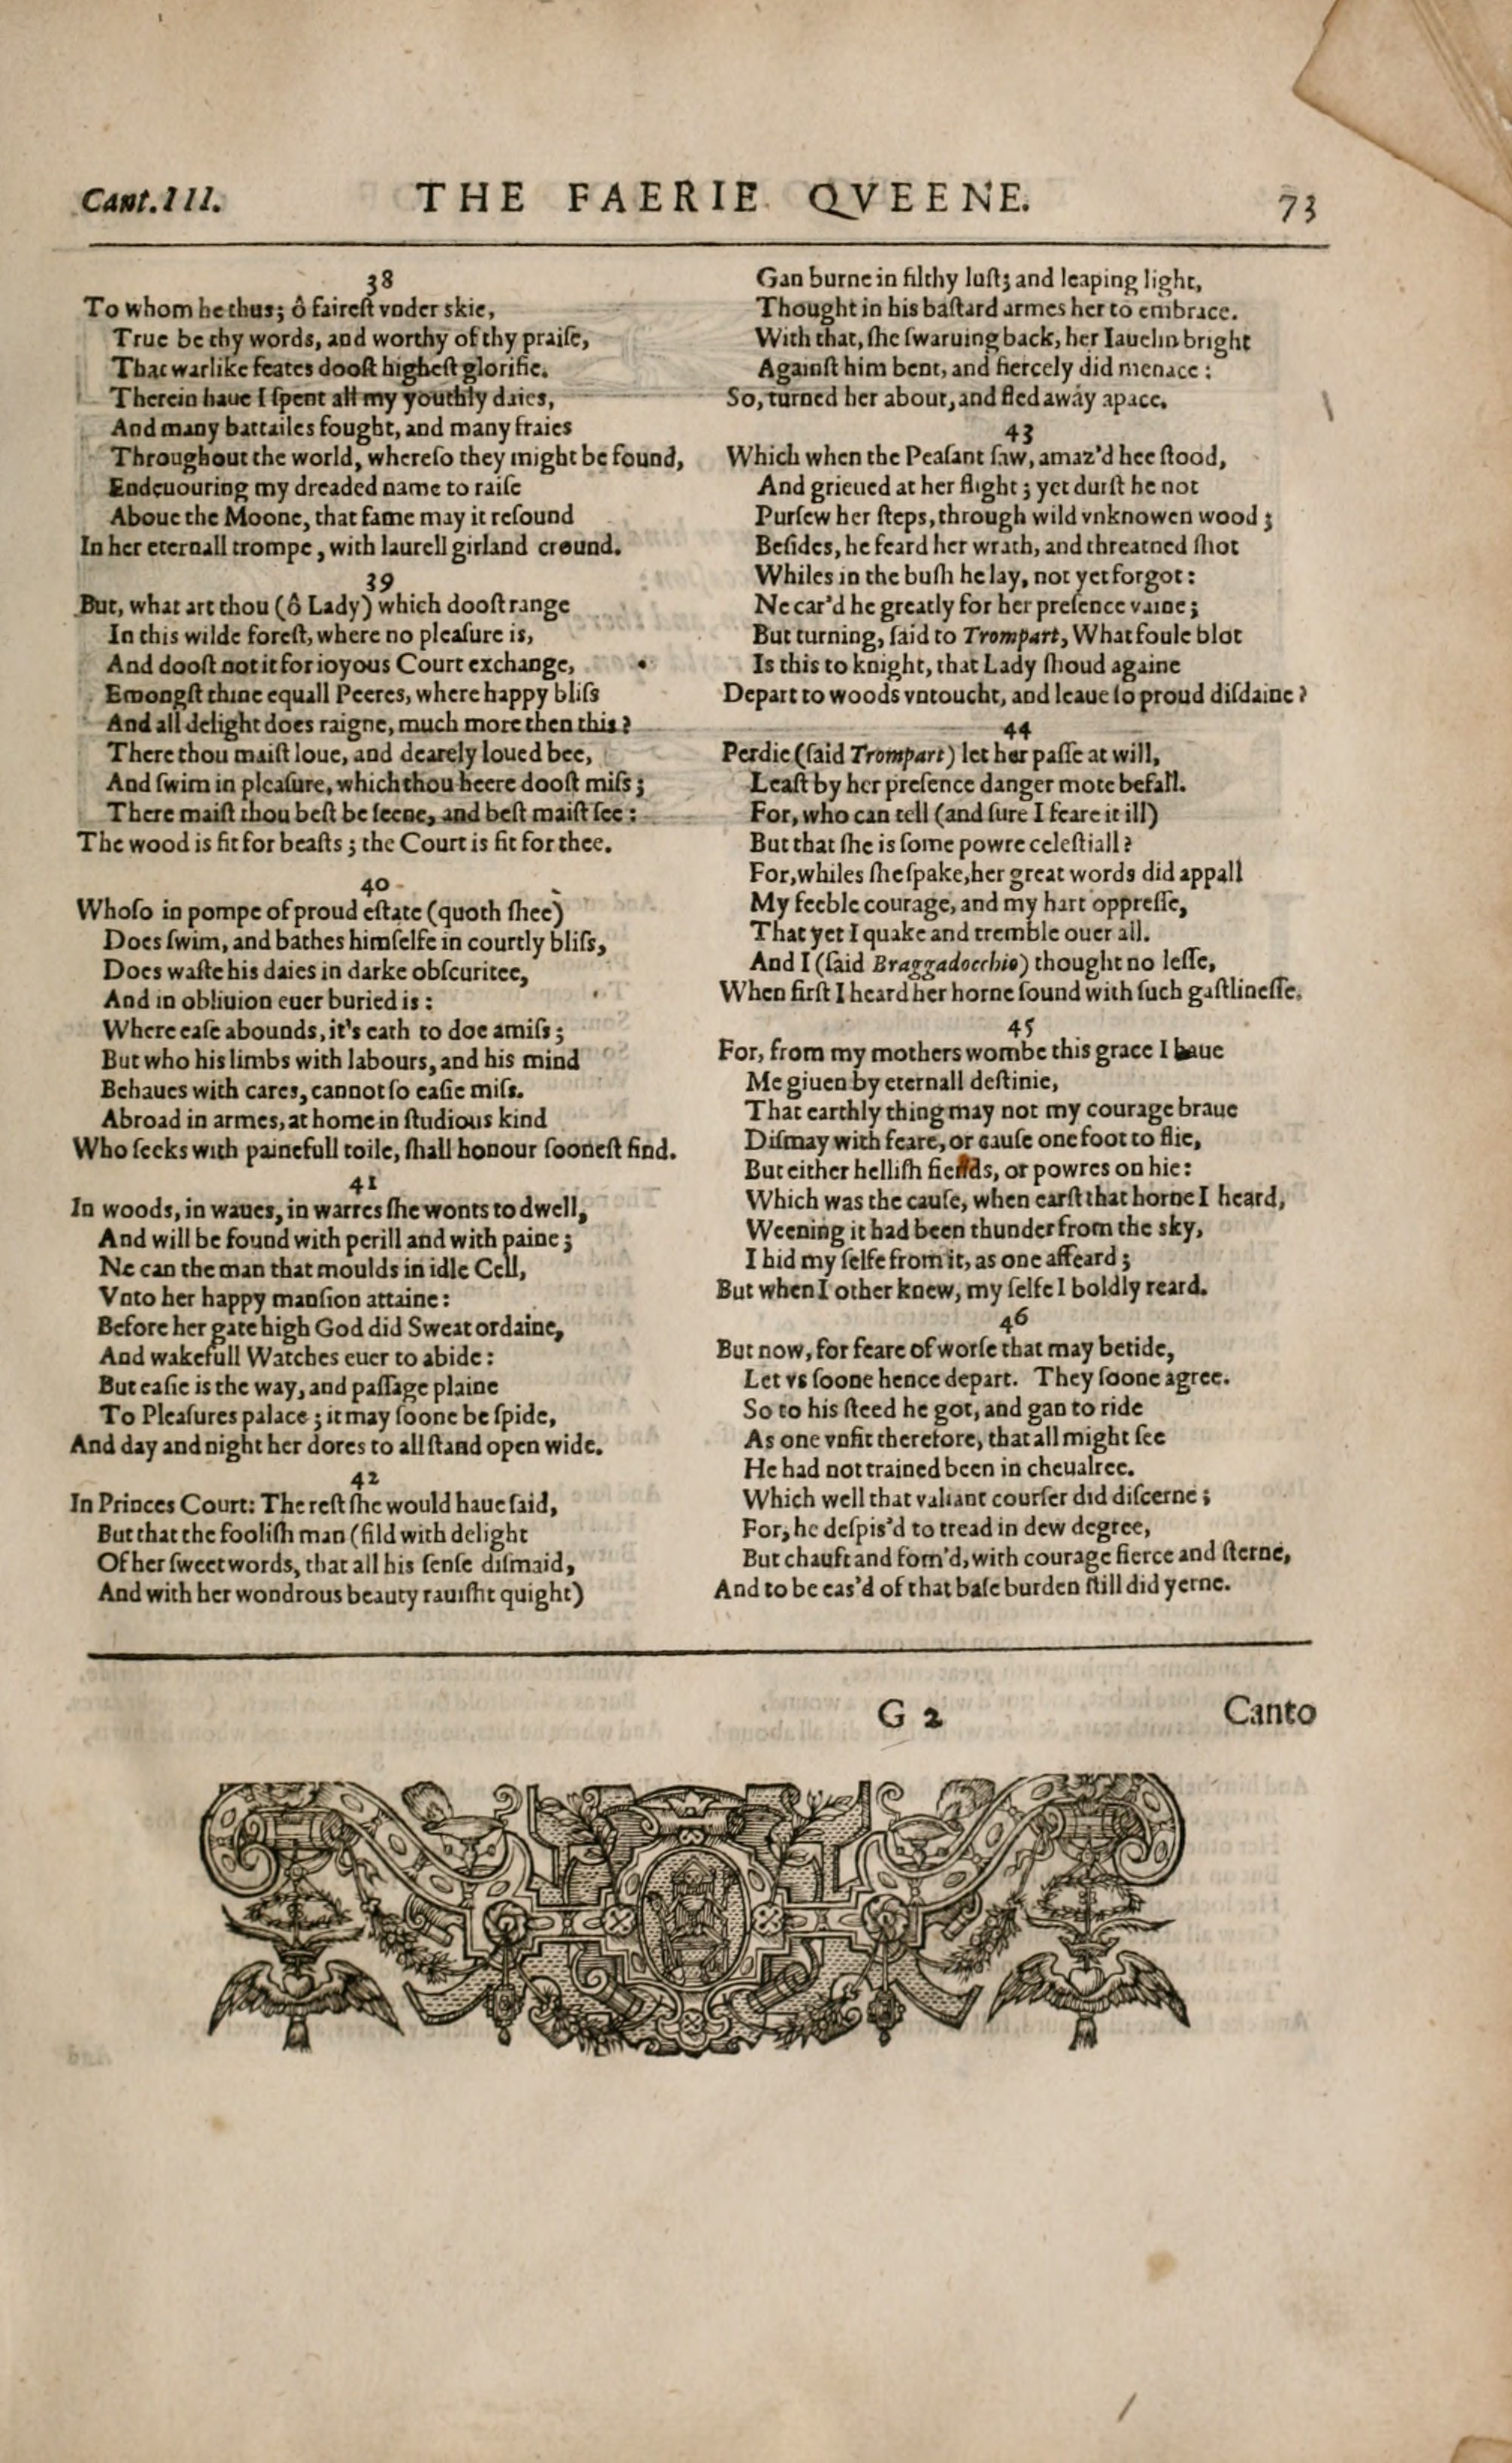 Cant. III. THE FAERIE QVEENE. 73
38
To whom he thus; ô faireſt vnder skie,
True be thy words, and worthy of thy praiſe,
That warlike feates dooſt higheſt glorifie.
Therein haue I ſpent all my youthly daies,
And many battailes fought, and many fraies
Throughout the world, whereſo they might be found,
Endeuouring my dreaded name to raiſe
Aboue the Moone, that fame may it reſound
In her eternall trompe, with laurell girland cround.
39
But, what art thou (ô Lady) which dooſt range
In this wilde foreſt, where no pleaſure is,
And dooſt not it for ioyous Court exchange,
Emongſt thine equall Peeres, where happy bliſs
And all delight does raigne, much more then this?
There thou maiſt loue, and dearely loued bee,
And ſwim in pleaſure, which thou heere dooſt miſs;
There maiſt thou beſt be ſeene, and beſt maiſt ſee:
The wood is fit for beaſts; the Court is fit for thee.
40
Whoſo in pompe of proud eſtate (quoth ſhee)
Does ſwim, and bathes himſelfe in courtly bliſs,
Does waſte his daies in darke obſcuritee,
And in obliuion euer buried is:
Where eaſe abounds, it's eath to doe amiſs;
But who his limbs with labours, and his mind
Behaues with cares, cannot ſo eaſie miſs.
Abroad in armes, at home in ſtudious kind
Who ſeeks with painefull toile, ſhall honour ſooneſt find.
41
In woods, in waues, in warres ſhe wonts to dwell,
And will be found with perill and with paine;
Ne can the man that moulds in idle Cell,
Vnto her happy manſion attaine:
Before her gate high God did Sweat ordaine,
And wakefull Watches euer to abide:
But eaſie is the way, and paſſage plaine
To Pleaſures palace; it may ſoone be ſpide,
And day and night her dores to all ſtand open wide.
42
In Princes Court: The reſt ſhe would haue ſaid,
But that the fooliſh man (fild with delight
Of her ſweet words, that all his ſenſe diſmaid,
And with her wondrous beauty rauiſht quight)
Gan burne in filthy luſt; and leaping light,
Thought in his baſtard armes her to embrace.
With that, ſhe ſwaruing back, her Iauelin bright
Againſt him bent, and fiercely did menace:
So, turned her about, and fled away apace.
43
Which when the Peaſant ſaw, amaz'd hee ſtood,
And grieued at her flight; yet durſt he not
Purſew her ſteps, through wild vnknowen wood;
Beſides, he feard her wrath, and threatned ſhot
Whiles in the buſh he lay, not yet forgot:
Ne car'd he greatly for her preſence vaine;
But turning, ſaid to Trompart, What foule blot
Is this to knight, that Lady ſhoud againe
Depart to woods vntoucht, and leaue ſo proud diſdaine?
44
Perdie (ſaid Trompart) let her paſſe at will,
Leaſt by her preſence danger mote befall.
For, who can tell (and ſure I feare it ill)
But that ſhe is ſome powre celeſtiall?
For, whiles ſhe ſpake, her great words did appall
My feeble courage, and my hart oppreſſe,
That yet I quake and tremble ouer all.
And I (ſaid Braggadocchio) thought no leſſe,
When firſt I heard her horne ſound with ſuch gaſtlineſſe.
45
For, from my mothers wombe this grace I haue
Me giuen by eternall deſtinie,
That earthly thing may not my courage braue
Diſmay with feare, or cauſe one foot to flie,
But either helliſh fiends, or powres on hie:
Which was the cauſe, when earſt that horne I heard,
Weening it had been thunder from the sky,
I hid my ſelfe from it, as one affeard;
But when I other knew, my ſelfe I boldly reard.
46
But now, for feare of worſe that may betide,
Let vs ſoone hence depart. They ſoone agree.
So to his ſteed he got, and gan to ride
As one vnfit therefore, that all might ſee
He had not trained been in cheualree.
Which well that valiant courſer did diſcerne;
For, he deſpis'd to tread in dew degree,
But chauft and fom'd, with courage fierce and ſterne,
And to be eas'd of that baſe burden ſtill did yerne.
G 2 Canto